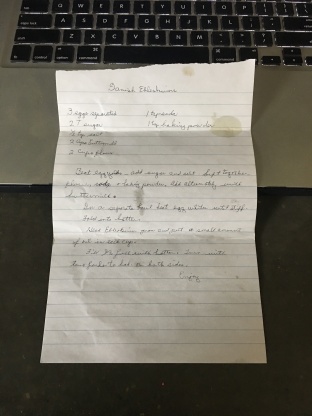 Danish Ebleskiver
3 eggs separated 1 tsp soda
2 T sugar 1 tsp baking powder
½ tsp salt
2 cups buttermilk
2 cups flour
Beat egg yolks, add sugar and salt. Sift together
flour, soda & baking powder. Add alternately with
buttermilk.
In a separate bowl beat egg whites until stiff.
Fold into batter.
Heat Ebleskiver pan and put a small amount
of oil in each cup.
Fill ⅔ full with batter. Turn with
two forks to bake on both sides.
Enjoy